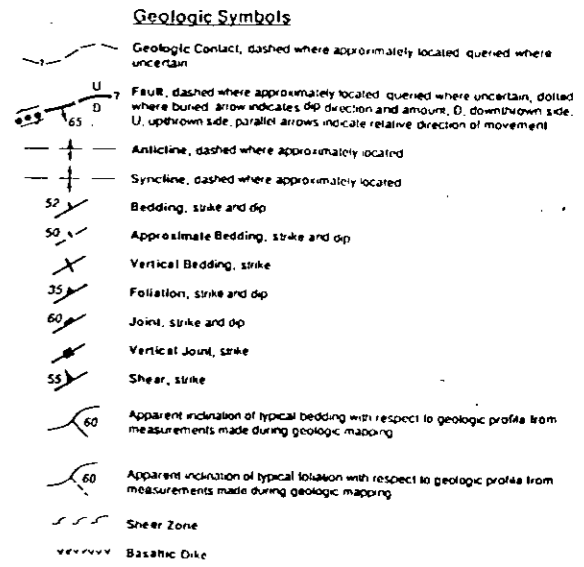 Geologic Symbols
Geologic Contact, dashed where approximately located queried where
uncertain
?
Fault, dashed where approximately located queried where uncertain, dotted
where buried arrow indicates dip direction and amount, D, downthrown side,
U, upthrown side, parallel arrows indicate relative direction of movement
U
?
D
65
Anticline, dashed where approximately located
Syncline, dashed where approximately located
52 Bedding, strike and dip
50 Approximate Bedding, strike and dip
Vertical Bedding, strike
35 Foliation, strike and dip
60 Joint, strike and dip
Vertical Joint, strike
55 Shear, strike
60 Apparent inclination of typical bedding with respect to geologic profile from
measurements made during geologic mapping
60 Apparent inclination of typical foliation with respect to geologic profile from
measurements made during geologic mapping
Sheer Zone
Basaltic Dike